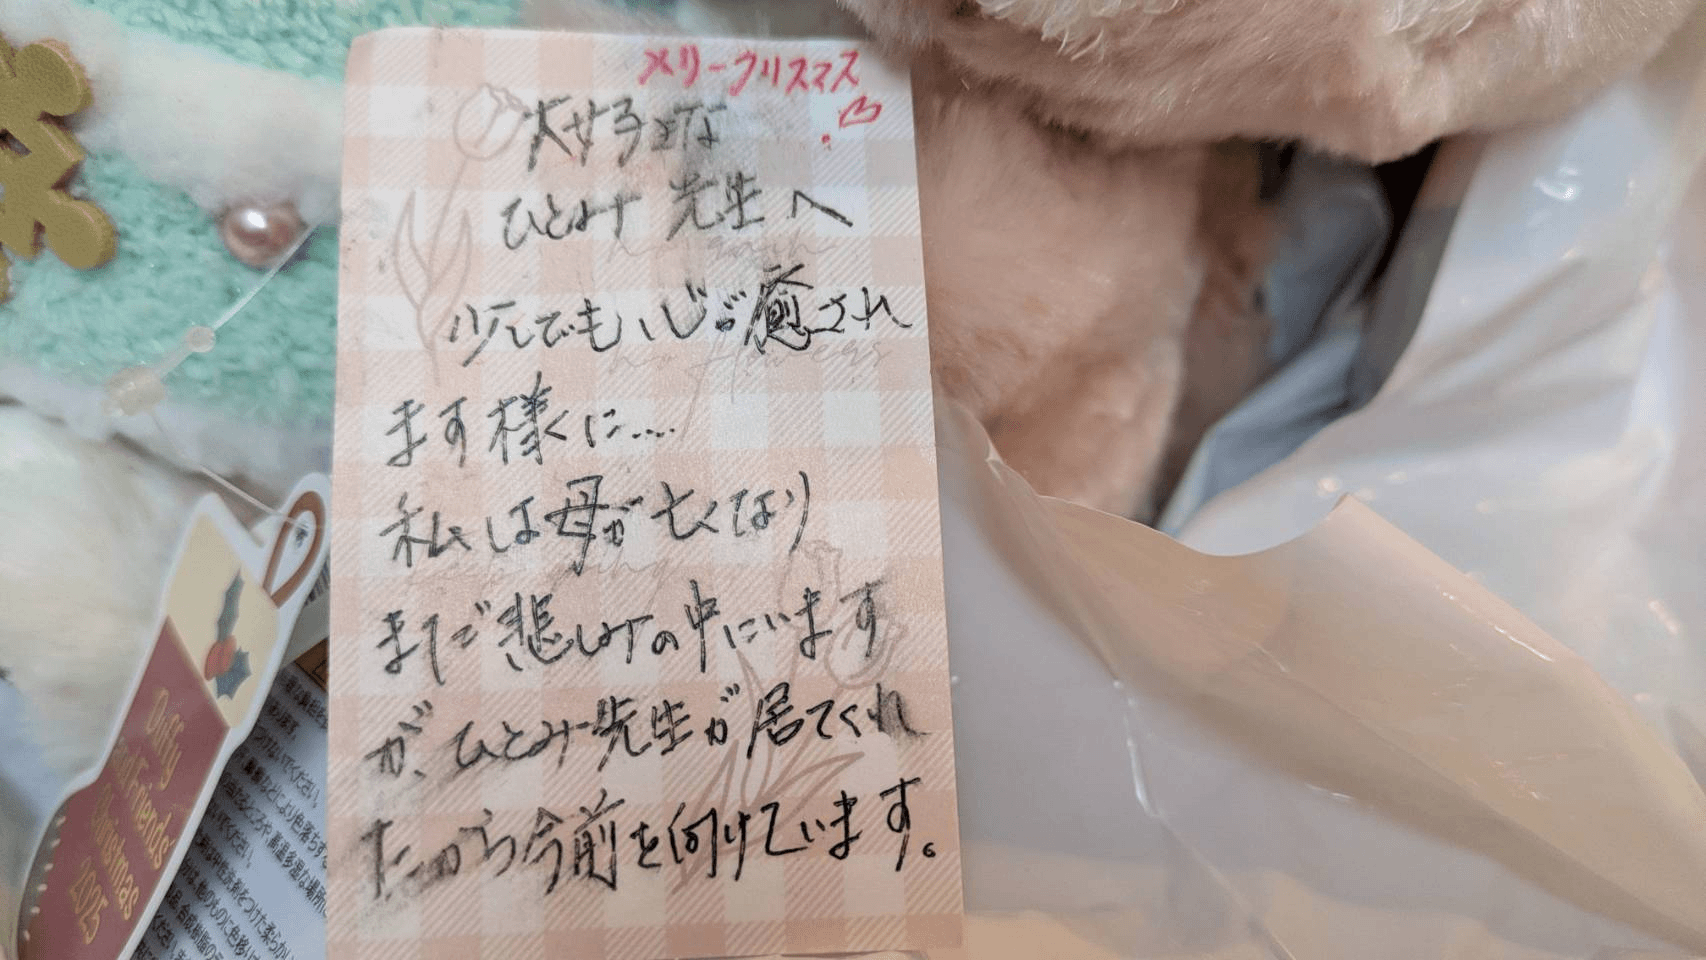 メリークリスマス
大好きな
ひとみ先生へ
少しでも心が癒され
ます様くに....
私は母が亡くなり
まだ悲しみの中にいます
が、ひとみ先生が居てくれ
たから今前を向けています。
Duffy
and Friends'
Christmas
2025